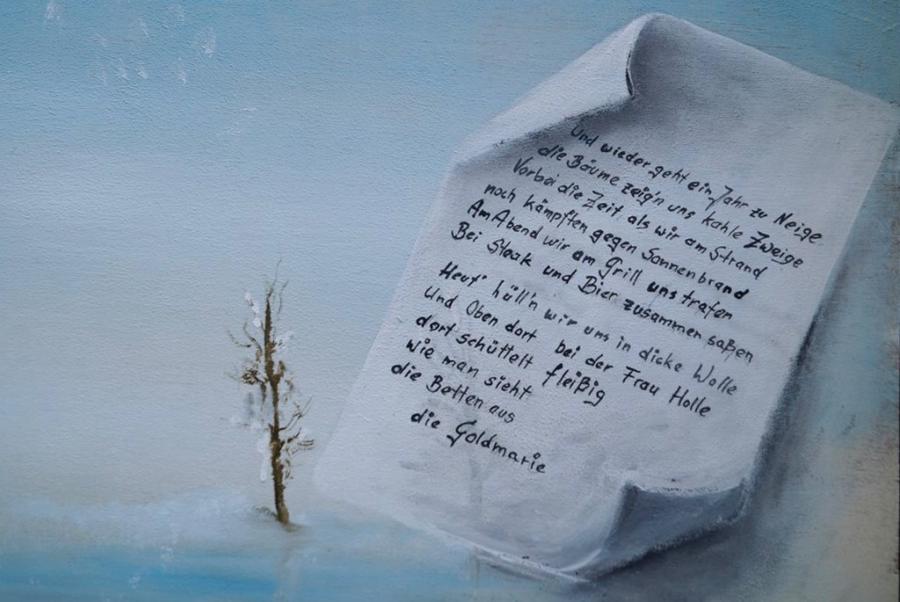 Und wieder geht ein Jahr zu Neige
die Bäume zeig'n uns kahle Zweige
Vorbei die Zeit als wir am Strand
noch kämpften gegen Sonnenbrand
Am Abend wir am Grill uns trafen
Bei Steak und Bier zusammen saßen
Heut' hüll'n wir uns in dicke Wolle
Und Oben dort bei der Frau Holle
dort schüttelt fleißig
wie man sieht
die Betten aus
die Goldmarie